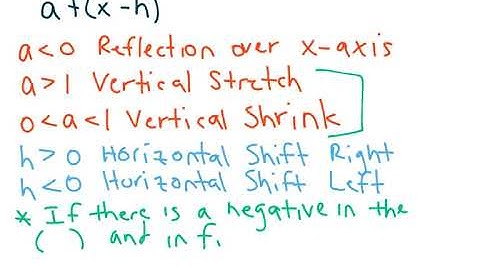 a f(x - h)
a < 0 Reflection over x-axis
a > 1 Vertical Stretch
0 < a < 1 Vertical Shrink
h > 0 Horizontal Shift Right
h < 0 Horizontal Shift Left
* If there is a negative in the
( ) and in f.